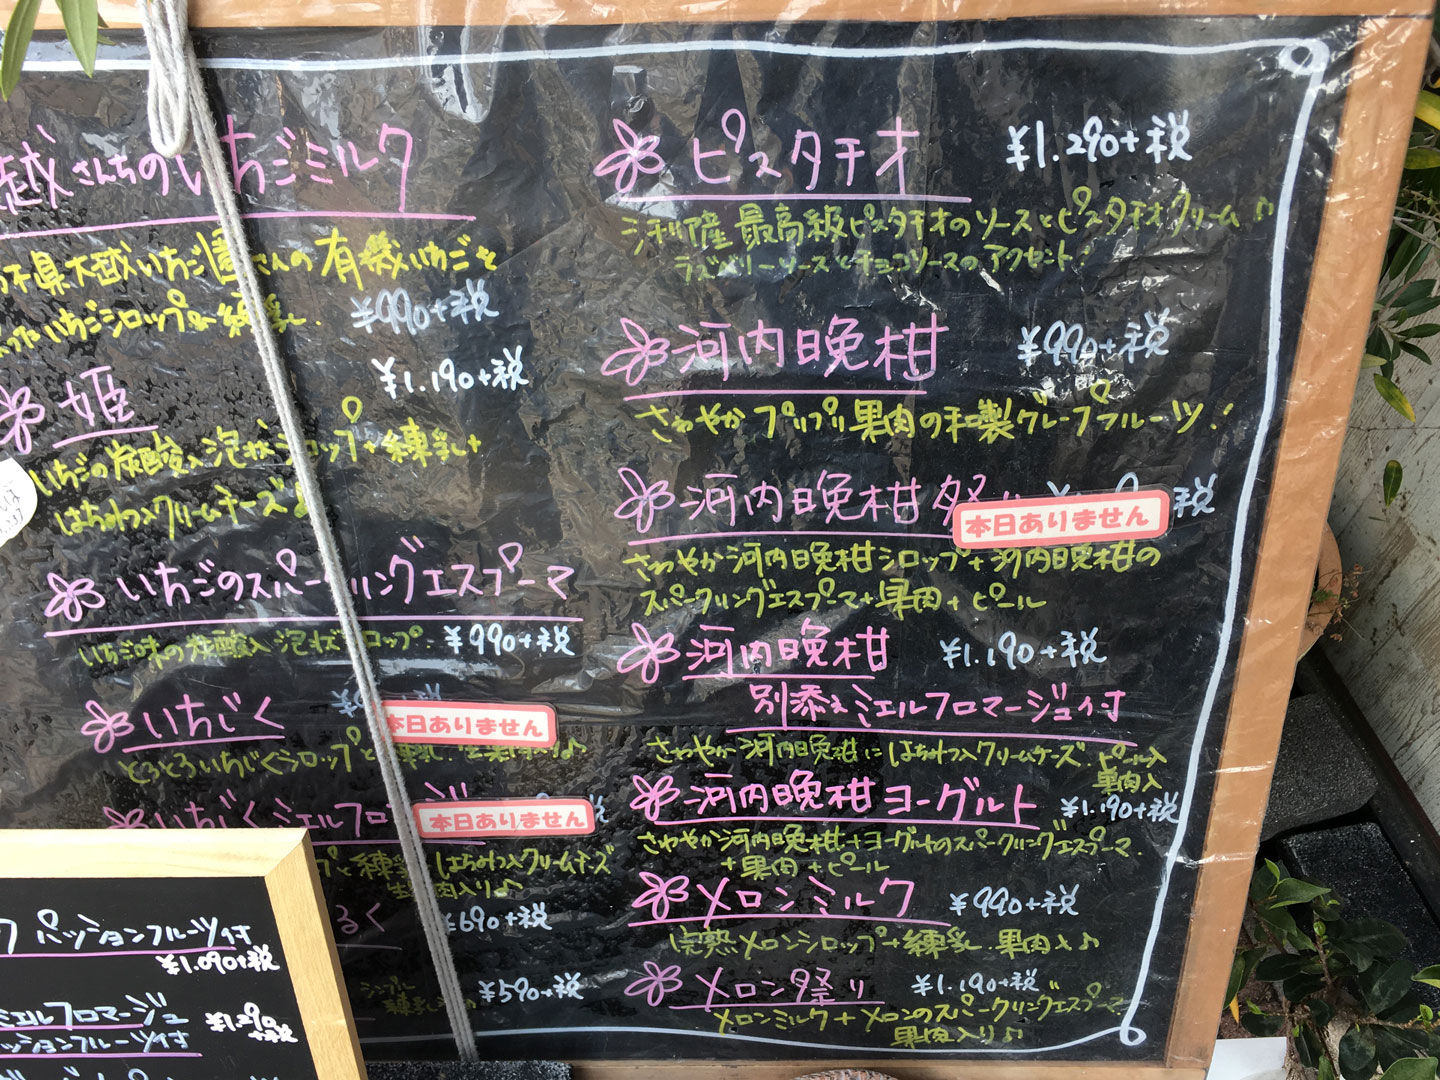 越さんちのいちごミルク
県大越いちご園さんの有機いちごを
いちごシロップ&練乳.
¥990+税
姫
¥1.190+税
いちごの炭酸入泡状シロップ+練乳+
はちみつ入クリームチーズ♪
いちごのスパークリングエスプーマ
いちご味の炭酸入泡状シロップ. ¥990+税
いちじく
本日ありません
とろとろいちじくシロップと練乳.
いちじくミエルフロマージュ
本日ありません
と練乳 はちみつ入クリームチーズ
生果肉入り♪
るく
¥690+税
シンプル
練乳
¥590+税
パッションフルーツ付
¥1.090+税
ミエルフロマージュ
¥1.290+税
ッションフルーツ付
ピスタチオ ¥1.290+税
最高級ピスタチオのソースとピスタチオクリーム♪
ラズベリーソースとチョコソースのアクセント!
河内晩柑 ¥990+税
さわやかプリプリ果肉の和製グレープフルーツ!
河内晩柑祭り
本日ありません
税
さわやか河内晩柑シロップ+河内晩柑の
スパークリングエスプーマ+果肉+ピール
河内晩柑 ¥1.190+税
別添えミエルフロマージュ付
さわやか河内晩柑にはちみつ入クリームチーズ.ピール入
果肉入
河内晩柑ヨーグルト ¥1.190+税
さわやか河内晩柑+ヨーグルトのスパークリングエスプーマ
+果肉+ピール
メロンミルク ¥990+税
完熟メロンシロップ+練乳.果肉入♪
メロン祭り ¥1.190+税
メロンミルク+メロンのスパークリングエスプーマ
果肉入り♪